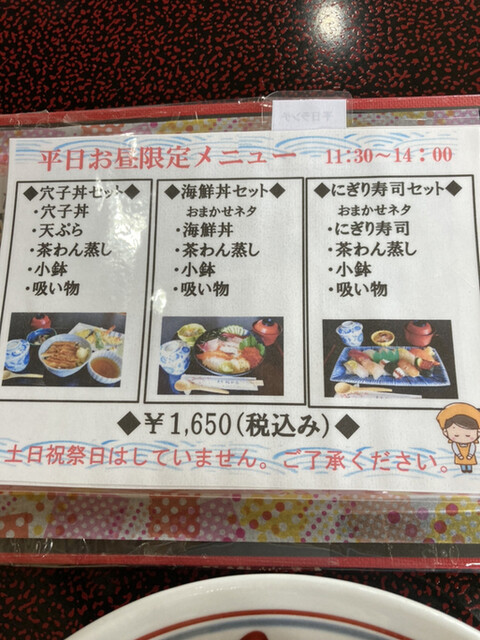 平日ランチ
平日お昼限定メニュー 11:30～14:00
◆穴子丼セット◆
・穴子丼
・天ぷら
・茶わん蒸し
・小鉢
・吸い物
◆海鮮丼セット◆
おまかせネタ
・海鮮丼
・茶わん蒸し
・小鉢
・吸い物
◆にぎり寿司セット◆
おまかせネタ
・にぎり寿司
・茶わん蒸し
・小鉢
・吸い物
◆￥1,650(税込み)◆
土日祝祭日はしていません。ご了承ください。